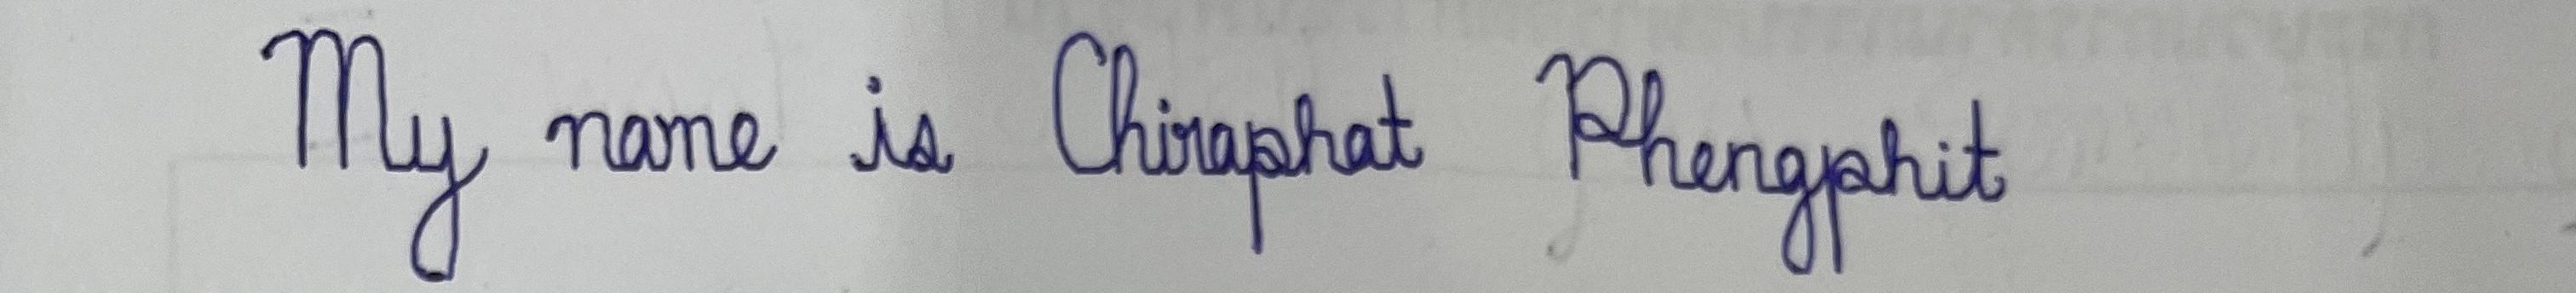 My name is Chiraphat Phengphit